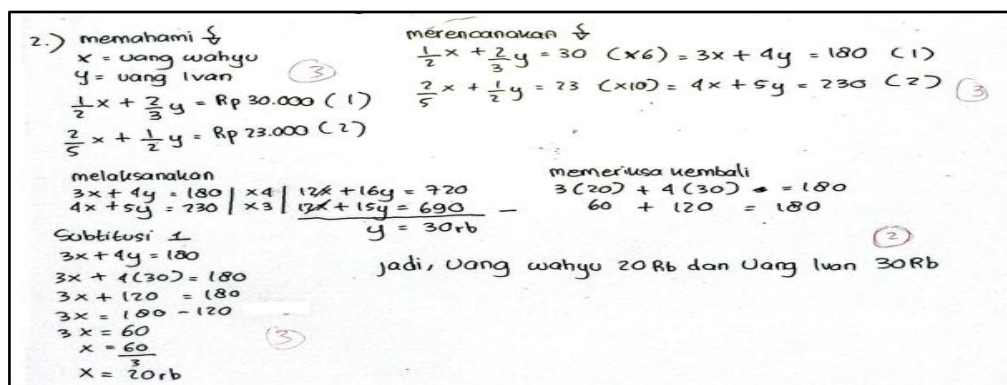 2.) memahami
x = uang wahyu
y = uang Ivan
③
1/2 x + 2/3 y = Rp 30.000 (1)
2/5 x + 1/2 y = Rp 23.000 (2)
merencanakan
1/2 x + 2/3 y = 30 (x6) = 3x + 4y = 180 (1)
2/5 x + 1/2 y = 23 (x10) = 4x + 5y = 230 (2)
③
melaksanakan
3x + 4y = 180 | x4 | 12x + 16y = 720
4x + 5y = 230 | x3 | 12x + 15y = 690 −
y = 30rb
Subtitusi 1
3x + 4y = 180
3x + 4(30) = 180
3x + 120 = 180
3x = 180 - 120
3x = 60
x = 60/3
x = 20rb
③
memeriksa kembali
3(20) + 4(30) = 180
60 + 120 = 180
②
jadi, Uang wahyu 20 Rb dan Uang Ivan 30Rb